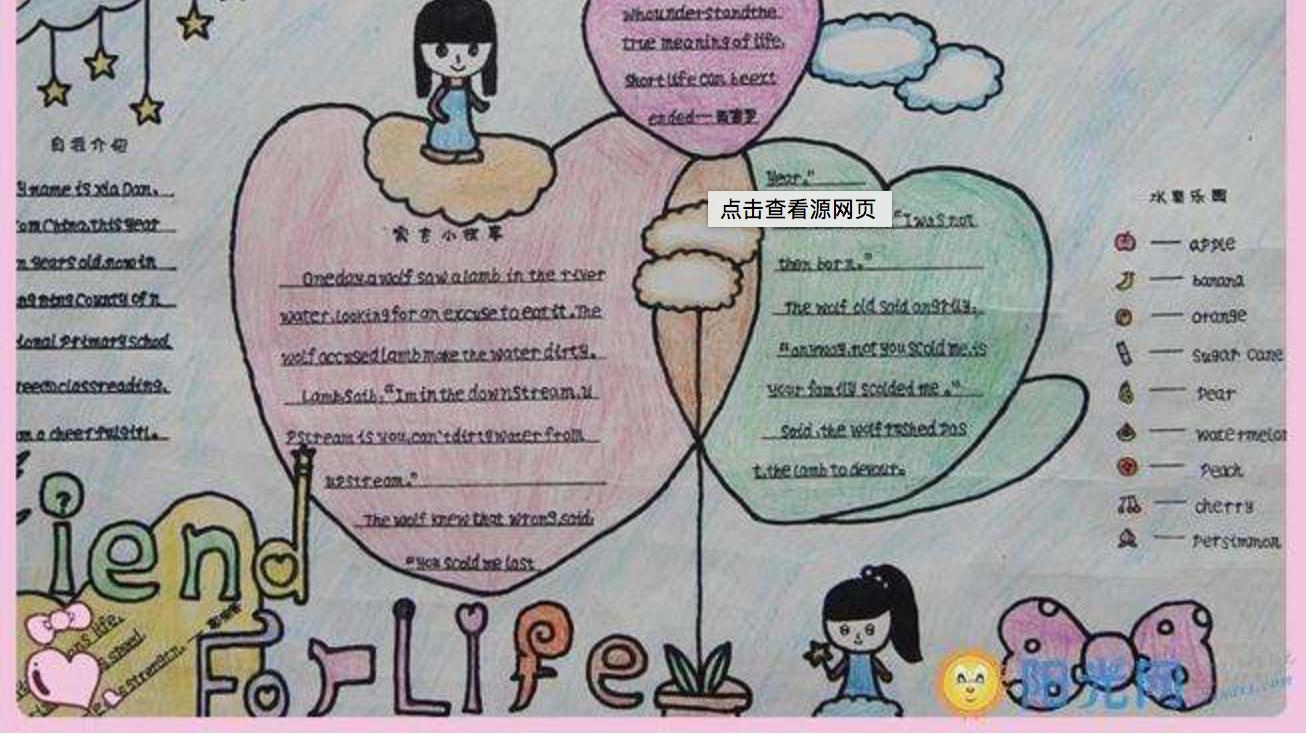 自我介绍
y name is Xia Dan.
om China. This year
n years old. now in
ng ning County of n
ional Primary school
reeclassreading.
m a cheerful girl.
whounderstandthe
true meaning of life.
Short life can be ext
ended—
寓言小故事
One day, a wolf saw a lamb in the river
water. Looking for an excuse to eat it. The
wolf accused lamb make the water dirty.
Lamb Saib, "Im in the down Stream. u
pstream is you, can't dirty water from
upstream."
The wolf knew that wrong, said.
"You scold me last
Year."
点击查看源网页
"I was not
then born."
The wolf old said angrily.
"anyway, not you scold me, is
your family scolded me."
Said, the wolf rushed pas
t, the lamb to devour.
水果乐园
apple
banana
orange
Sugar cane
Pear
watermelon
Peach
cherry
Persimmon
iend
For Life
ans life.
school
stranger.
阳光网